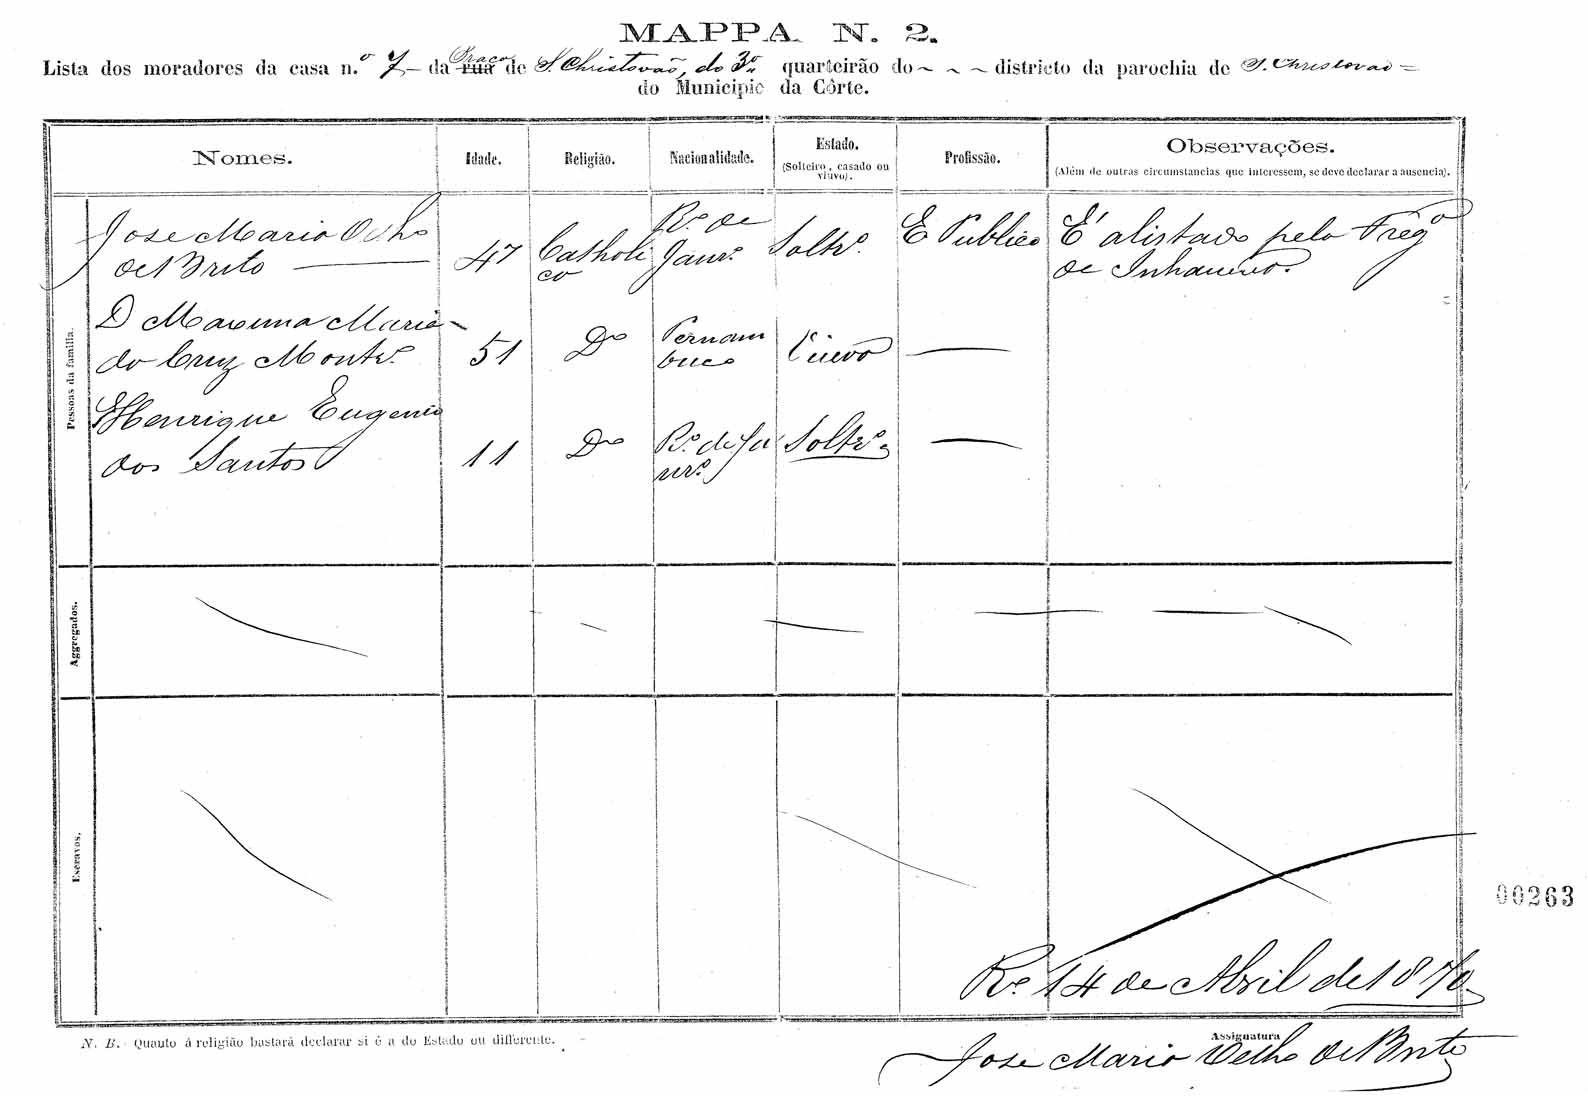 MAPPA N. 2.
Lista dos moradores da casa n.º 7 da rua Praça de S. Christovão, do 3º quarteirão do districto da parochia de S. Christovão
do Municipio da Côrte.
Nomes. Idade. Religião. Nacionalidade. Estado. (Solteiro, casado ou viuvo). Profissão. Observações. (Além de outras circumstancias que interessem, se deve declarar a ausencia).
Pessoas da familia.
Jose Maria Velho de Brito 47 Catholico Rº de Janrº Soltrº E Publico É alistado pela Fregª de
D Maria da Cruz Montrº 51 Dº Pernambuco Viuva
Henrique Eugenio dos Santos 11 Dº Rº de Janrº Soltrº
Aggregados.
Escravos.
00263
Rº 14 de Abril de 1870
N. B. Quanto á religião bastará declarar si é a do Estado ou differente.
Assignatura
Jose Maria Velho de Brito